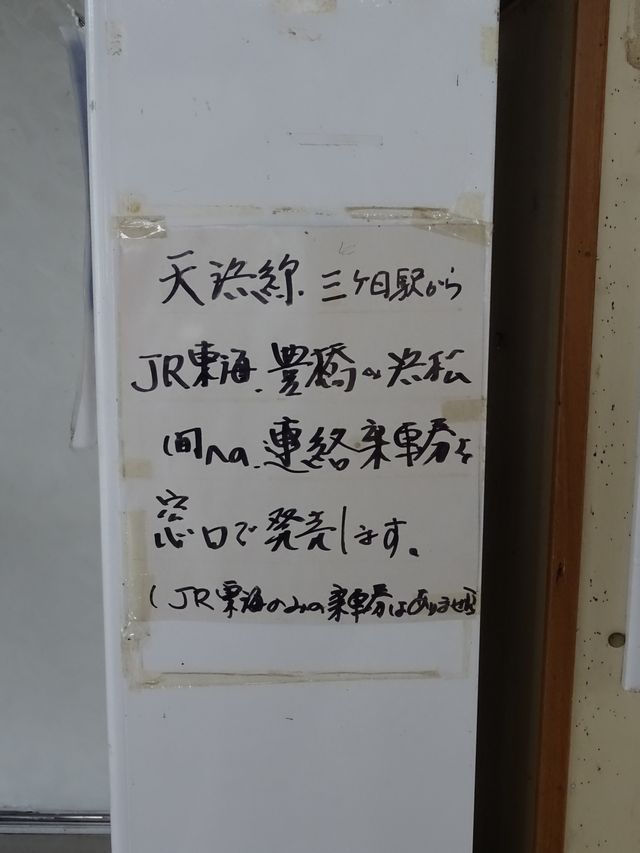 天浜線. 三ケ日駅から
JR東海. 豊橋〜浜松
間への. 連絡乗車券を
窓口で発売します。
(JR東海のみの乗車券はありません)